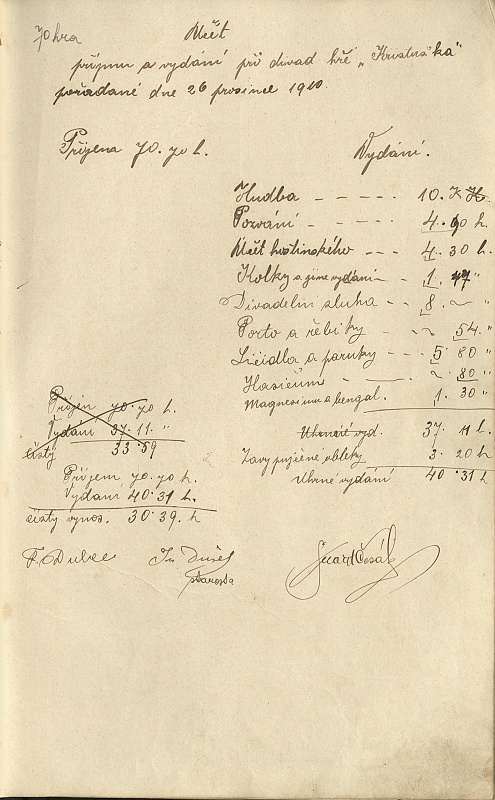 70 hra
Účet
příjmu a vydání při divad hře „Kristuška"
pořádané dne 26 prosince 1910.
Příjem 70.70 h.
Vydání.
Hudba - - - - 10. K
Pozvání - - - - 4.90 h.
Účet hostinského - - - 4.30 h.
Kolky a jiné vydání - - 1.47 "
Divadelní sluha - - 8. ~ "
Porto a hřebíky - - ~ 54. "
Líčidla a paruky - - - 5 80 "
Hasičům - - - ~ 80 "
Magnesium a bengal. 1. 30 "
Příjem 70.70 h.
Vydání 37.11. "
čistý 33.59
Úhrnné vyd. 37 11 h.
Zavypujčené obleky 3.20 h
Úhrné vydání 40.31 h
Příjem 70.70 h.
Vydání 40.31 h.
čistý výnos. 30.39. h
F. Dubec
starosta